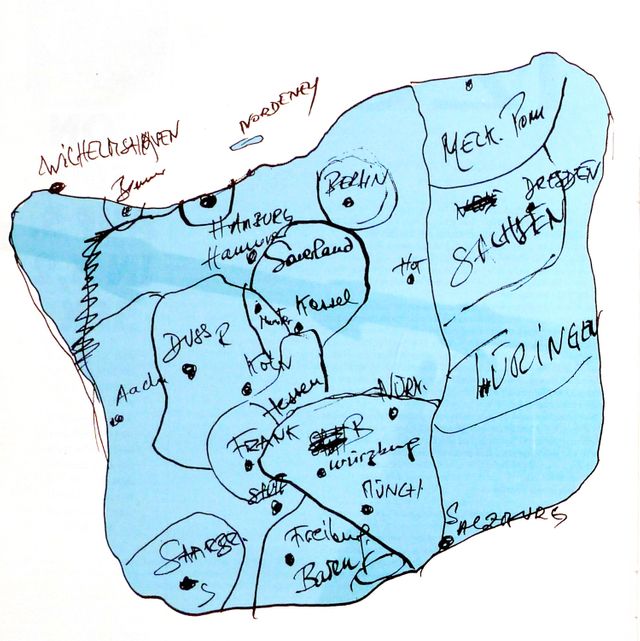 NORDENEY
WICHELMSHAVEN
MECK. POM
BERLIN
DRESDEN
HAMBURG
Hannover
SACHSEN
Sauerland
Hof
Kassel
Münster
DUSSR
KÖLN
THÜRINGEN
Aach
Hessen
NÜRN.
FRANK
B
Würzburg
STUT
MÜNCH
SALZBURG
Freiburg
SAARBR.
Baden
S